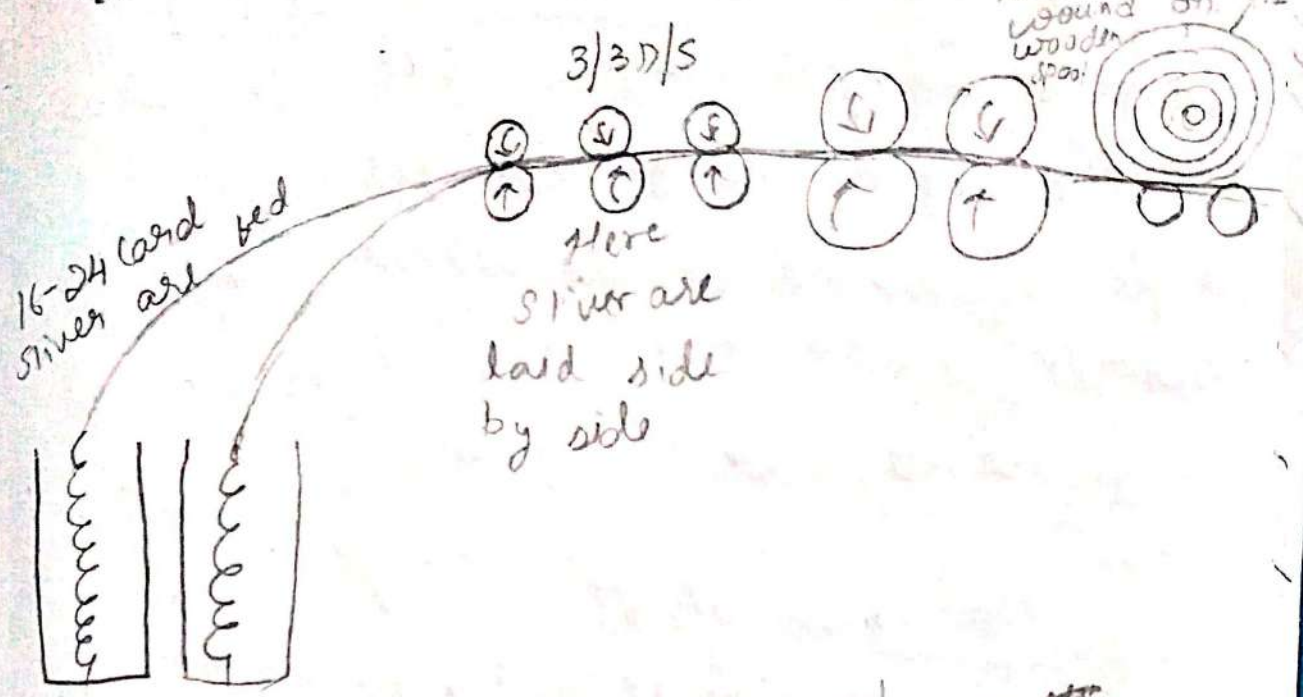 wound on
wooden
spool
3/3 D/S
16-24 Card fed
sliver are
Here
sliver are
laid side
by side